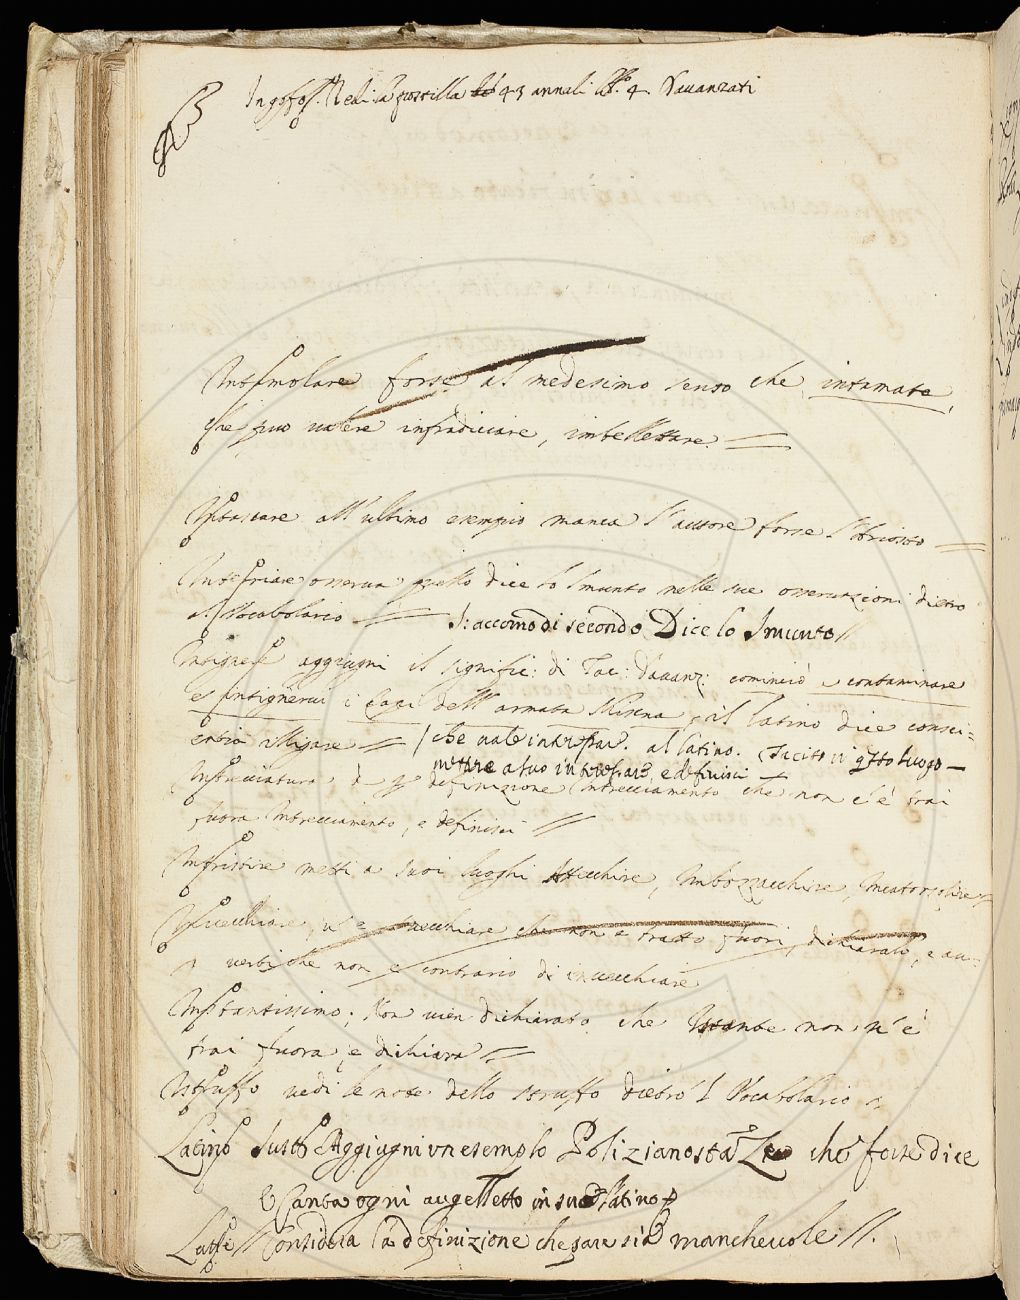 Ingoffo. Redi la postilla 43 annali lib.o 4. Davanzati
Intemolare forse al medesimo senso che intamate,
che può valere infradiciare, imbellettare.
Intascare all'ultimo esempio manca l'autore forse l'Ariosto
Intefriare osserva quello dice lo Smunto nelle sue osservazioni dietro
al Vocabolario S: accomodi secondo Dice lo Smunto
Intignere aggiugni il signific: di Tac: Davanz: cominciò a contaminare
e intignervi i Capi dell'armata Misena, il latino dice consci=
entia illigare / che vale intrefar. al latino. Tacito in q.sto luogo
mettere a suo e definisci
Intrecciatura à p definizione Intrecciamento che non c'è trai
fuora Intrecciamento, e definisci
Intristire metti a suoi luoghi Atecchire, Imbozzacchire, Incatorzolire
Invecchiare, v'è svecchiare che non è tratto fuori, dichiaralo, e av=
verti che non è contrario di invecchiare
Instantissimo; Non vien dichiarato che Istante non v'è
trai fuora, e dichiara
Istruffo vedi le note dello struffo dietro 'l Vocabolario
Latino sust.o Aggiugni un esemplo Poliziano sta. che forse dice
E Canta ogni augelletto in suo latino
Latte Considera la definizione che pare sia manchevole.